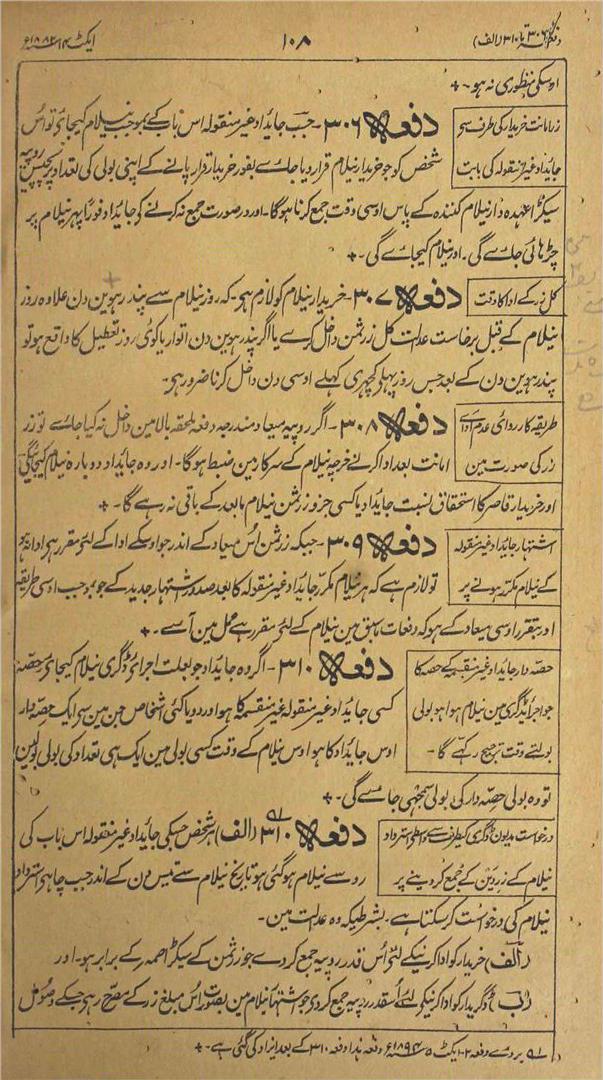 دفعات ۳۰۶ تا ۳۱۰ (الف) ۱۰۸ ایکٹ ۱۴ سنہ ۱۸۸۲ع
اوسکی منظوری نہ ہو -
زر امانت خریدار کی طرف سے
جائداد غیر منقولہ کی بابت
دفعہ ۳۰۶ - جب جائداد غیر منقولہ اس باب کے بموجب نیلام کیجائے تو اُس
شخص کو جو خریدار نیلام قرار دیا جاے بفور خریدار قرار پانے کے اپنی بولی کی تعداد پر پچیس روپیہ
سیکڑا عہدہ دار نیلام کنندہ کے پاس اوسی وقت جمع کرنا ہوگا - اور در صورت جمع نہ کرنے کے جائداد فوراً پھر نیلام پر
چڑھائی جاے گی - اور نیلام کیجاے گی -
کل زر کے ادا کا وقت
دفعہ ۳۰۷ - خریدار نیلام کو لازم ہے - کہ روز نیلام سے پندرہوین دن علاوہ روز
نیلام کے قبل برخاست عدالت کل زر ثمن داخل کرے یا اگر پندرہوین دن اتوار یا کوئی روز تعطیل کا واقع ہو تو
پندرہوین دن کے بعد جس روز پہلے کچہری کہلے اوسی دن داخل کرنا ضرور ہے -
طریقہ کارروائی عدم اداے
زر کی صورت مین
دفعہ ۳۰۸ - اگر روپیہ میعاد مندرجہ دفعہ ملحقہ بالا مین داخل نہ کیا جاے تو زر
امانت بعد ادا کرنے خرچہ نیلام کے سرکار مین ضبط ہوگا - اور وہ جائداد دوبارہ نیلام کیجائیگی
اور خریدار قاصر کا استحقاق نسبت جائداد یا کسی جزو زر ثمن نیلام مابعد کے باقی نہ رہے گا -
اشتہار جائداد غیر منقولہ
کے نیلام مکرر ہونے پر
دفعہ ۳۰۹ - جبکہ زر ثمن اُس میعاد کے اندر جو اوسکے ادا کے لئے مقرر ہے ادا نہ ہو
تو لازم ہے کہ ہر نیلام مکرر جائداد غیر منقولہ کا بعد صدور اشتہار جدید کے جو بموجب اوسی طریقہ
اور بتقرر اوسی میعاد کے ہو کہ دفعات ماسبق مین نیلام کے لئے مقرر ہے عمل مین آسے -
حصہ دار جائداد غیر منقسمہ کے حصہ کا
جو اجراے ڈگری مین نیلام ہوا ہو بولی
بولتے وقت ترجیح رکہے گا -
دفعہ ۳۱۰ - اگر وہ جائداد جو بعلت اجراے ڈگری نیلام کیجائے حصہ
کسی جائداد غیر منقولہ غیر منقسمہ کا ہو اور دو یا کئی اشخاص جن مین سے ایک حصہ دار
اوس جائداد کا ہو اوس نیلام کے وقت کسی بولی مین ایک ہی تعداد کی بولی بولین
تو وہ بولی حصہ دار کی بولی سمجہی جاے گی -
درخواست مدیون ڈگری کیطرف سے واسطے استرداد
نیلام کے زر دین کے جمع کر دینے پر
دفعہ ۳۱۰ (الف) ہر شخص جسکی جائداد غیر منقولہ اس باب کی
رو سے نیلام ہو گئی ہو تاریخ نیلام سے تیس دن کے اندر جب چاہے استرداد
نیلام کی درخواست کر سکتا ہے - بشرطیکہ وہ عدالت مین -
(الف) خریدار کو ادا کرنیکے لئے اُس قدر روپیہ جمع کر دے جو زر ثمن کے سیکڑا صہ کے برابر ہو - اور
(ب) ڈگریدار کو ادا کرنیکے لئے اُسقدر روپیہ جمع کر دے جو اشتہار نیلام مین بصورت اُس مبلغ زر کے مصرح رہے جسکے وصول
بروے دفعہ ۲ - ایکٹ ۵ سنہ ۱۸۹۴ع دفعہ ہذا دفعہ ۳۱۰ کے بعد ایزاد کی گئی ہے -